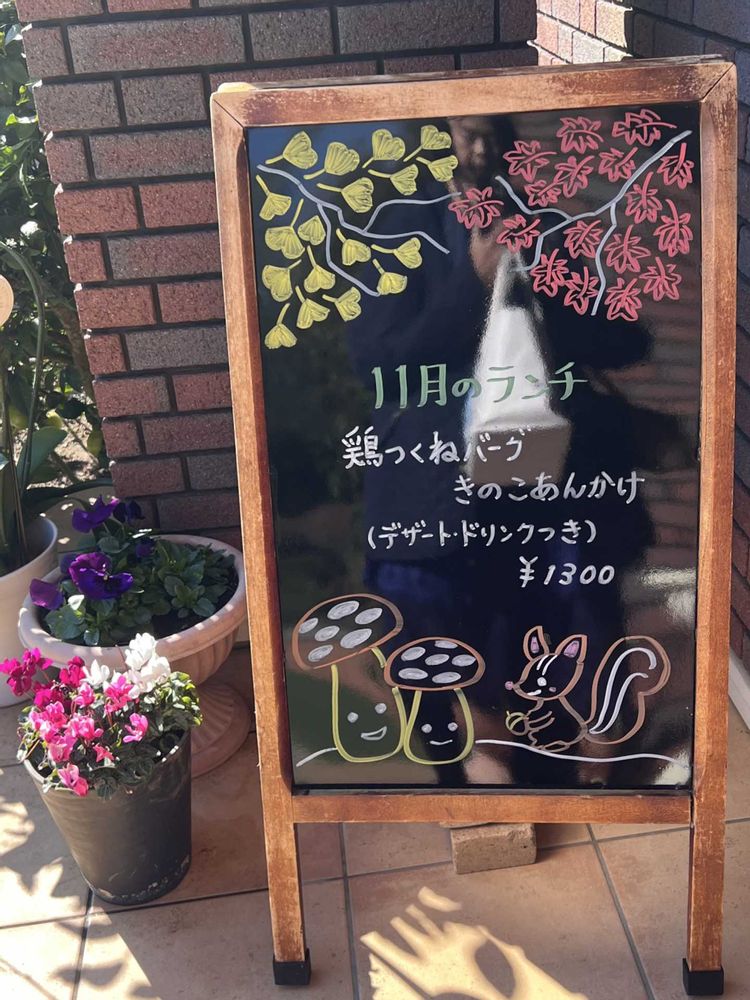 11月のランチ
鶏つくねバーグ
きのこあんかけ
(デザート・ドリンクつき)
¥1300